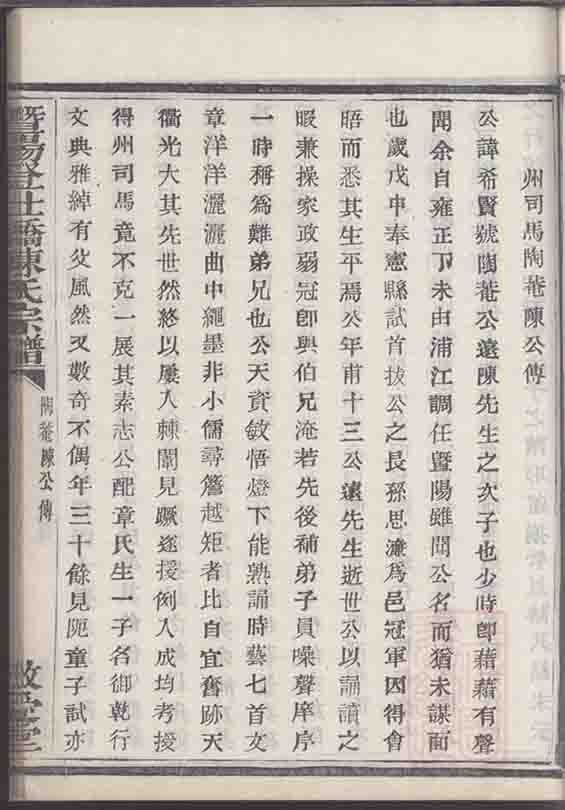 州司馬陶菴陳公傳
公諱希賢號陶菴公遠陳先生之次子也少時卽藉藉有聲
聞余自雍正丁未由浦江調任暨陽雖聞公名而猶未謀面
也歲戊申奉憲縣試首拔公之長孫思濂爲邑冠軍因得會
晤而悉其生平焉公年甫十三公遠先生逝世公以誦讀之
暇兼操家政弱冠卽與伯兄淹若先後補弟子員噪聲庠序
一時稱爲難弟兄也公天資敏悟燈下能熟誦時藝七首文
章洋洋灑灑曲中繩墨非小儒尋簷越矩者比自宜奮跡天
衢光大其先世然終以屢入棘闈見蹶遂援例入成均考授
得州司馬竟不克一展其素志公配章氏生一子名御乾行
文典雅綽有父風然又數奇不偶年三十餘見阨童子試亦
暨陽登仕橋陳氏宗譜
陶菴陳公傳